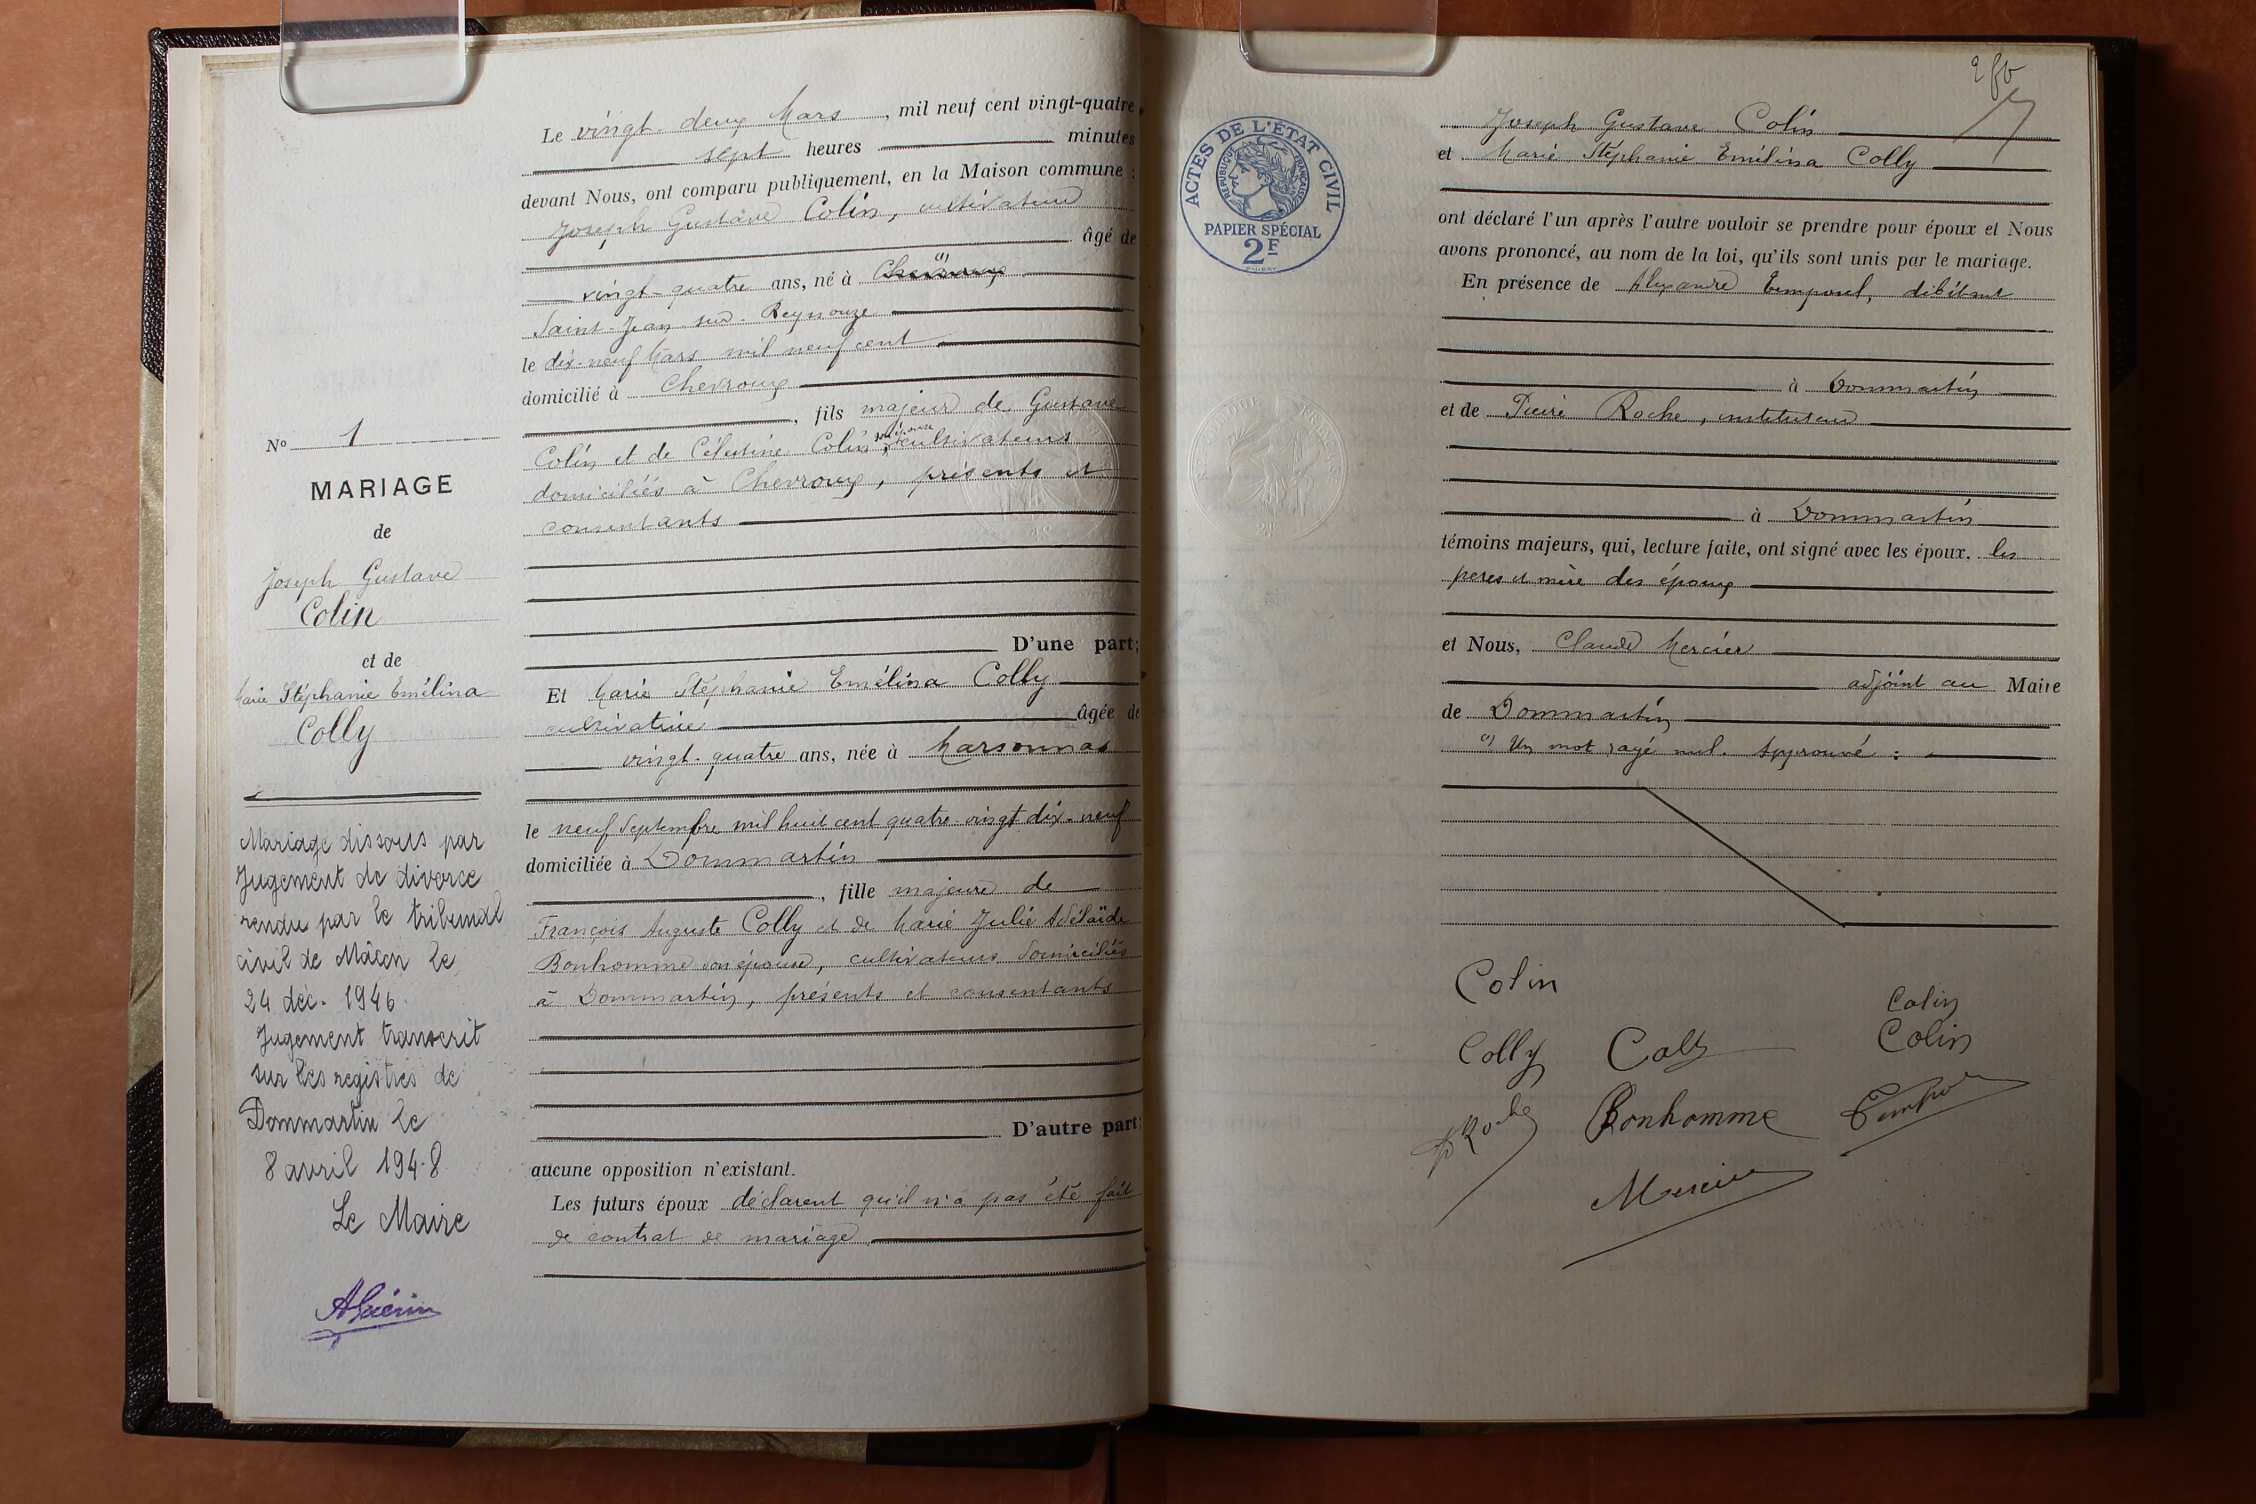 Le vingt-deux Mars, mil neuf cent vingt-quatre
sept heures minutes
devant Nous, ont comparu publiquement, en la Maison commune :
Joseph Gustave Colin, cultivateur
âgé de
vingt-quatre ans, né à (1) Chevroux
Saint-Jean-sur-Reyssouze
le dix-neuf Mars mil neuf cent
domicilié à Chevroux
, fils majeur de Gustave
Colin et de Célestine Colin, son épouse cultivateurs
domiciliés à Chevroux, présents et
consentants
D'une part;
Et Marie Stéphanie Emélina Colly
cultivatrice âgée de
vingt-quatre ans, née à Marsonnas
le neuf Septembre mil huit cent quatre-vingt dix-neuf
domiciliée à Dommartin
, fille majeure de
François Auguste Colly et de Marie Julie Adélaïde
Bonhomme son épouse, cultivateurs domiciliés
à Dommartin, présents et consentants
D'autre part;
aucune opposition n'existant.
Les futurs époux déclarent qu'il n'a pas été fait
de contrat de mariage
N° 1
MARIAGE
de
Joseph Gustave
Colin
et de
Marie Stéphanie Emélina
Colly
Mariage dissous par
Jugement de divorce
rendu par le tribunal
civil de Mâcon le
24 déc. 1946
Jugement transcrit
sur les registres de
Dommartin le
8 avril 1948
Le Maire
AGuérin
ACTES DE L'ÉTAT CIVIL
RÉPUBLIQUE FRANÇAISE
PAPIER SPÉCIAL
2F
Joseph Gustave Colin
et Marie Stéphanie Emélina Colly
ont déclaré l'un après l'autre vouloir se prendre pour époux et Nous
avons prononcé, au nom de la loi, qu'ils sont unis par le mariage.
En présence de Alexandre Temporel, débitant
à Dommartin
et de Pierre Roche, instituteur
à Dommartin
témoins majeurs, qui, lecture faite, ont signé avec les époux, les
pères et mère des époux
et Nous, Claude Mercier
adjoint au Maire
de Dommartin
(1) Un mot rayé nul. Approuvé :
Colin
Colin
Colly Colly Colin
PRoche Bonhomme
Mercier